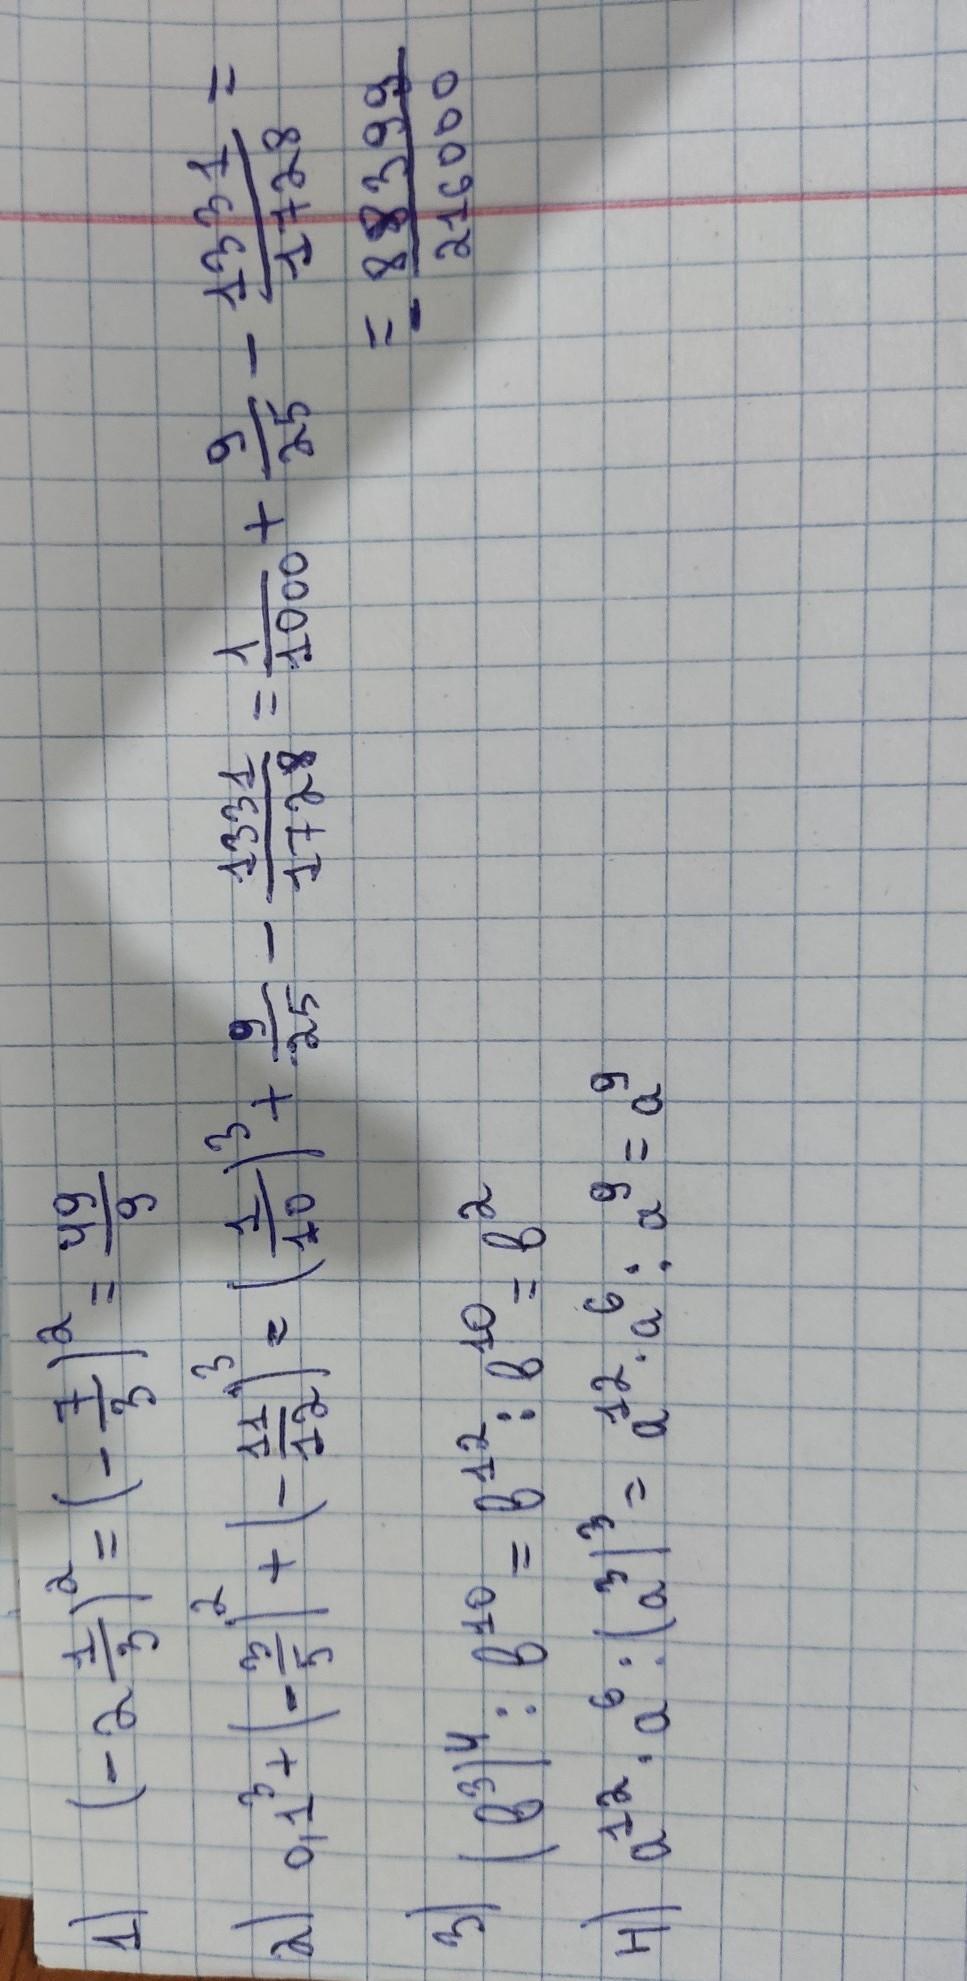 1) (-2 1/3)² = (-7/3)² = 49/9
2) 0,1³ + (-3/5)² + (-11/12)³ = (1/10)³ + 9/25 - 1331/1728 = 1/1000 + 9/25 - 1331/1728 =
= - 88399/216000
3) (b³)⁴ : b¹⁰ = b¹² : b¹⁰ = b²
4) a¹² · a⁶ : (a³)³ = a¹² · a⁶ : a⁹ = a⁹